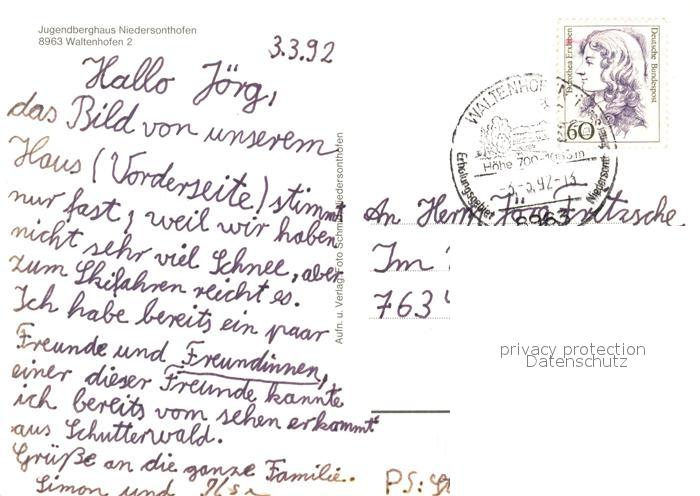 Jugendberghaus Niedersonthofen
8963 Waltenhofen 2
3.3.92
Hallo Jörg,
das Bild von unserem
Haus (Vorderseite) stimmt
nur fast, weil wir haben
nicht sehr viel Schnee, aber
zum Skifahren reicht es.
Ich habe bereits ein paar
Freunde und Freundinnen,
einer dieser Freunde kannte
ich bereits vom sehen er kommt
aus Schutterwald.
Grüße an die ganze Familie..
Simon und
PS:
Aufn. u. Verlag Foto Niedersonthofen
Dorothea Erxleben
Deutsche Bundespost
60
WALTENHOF
Höhe 700-
-3.-3.92-13
Erholungsgebiet
8963
An Herrn Jörg Fritzsche
Im
763
privacy protection
Datenschutz